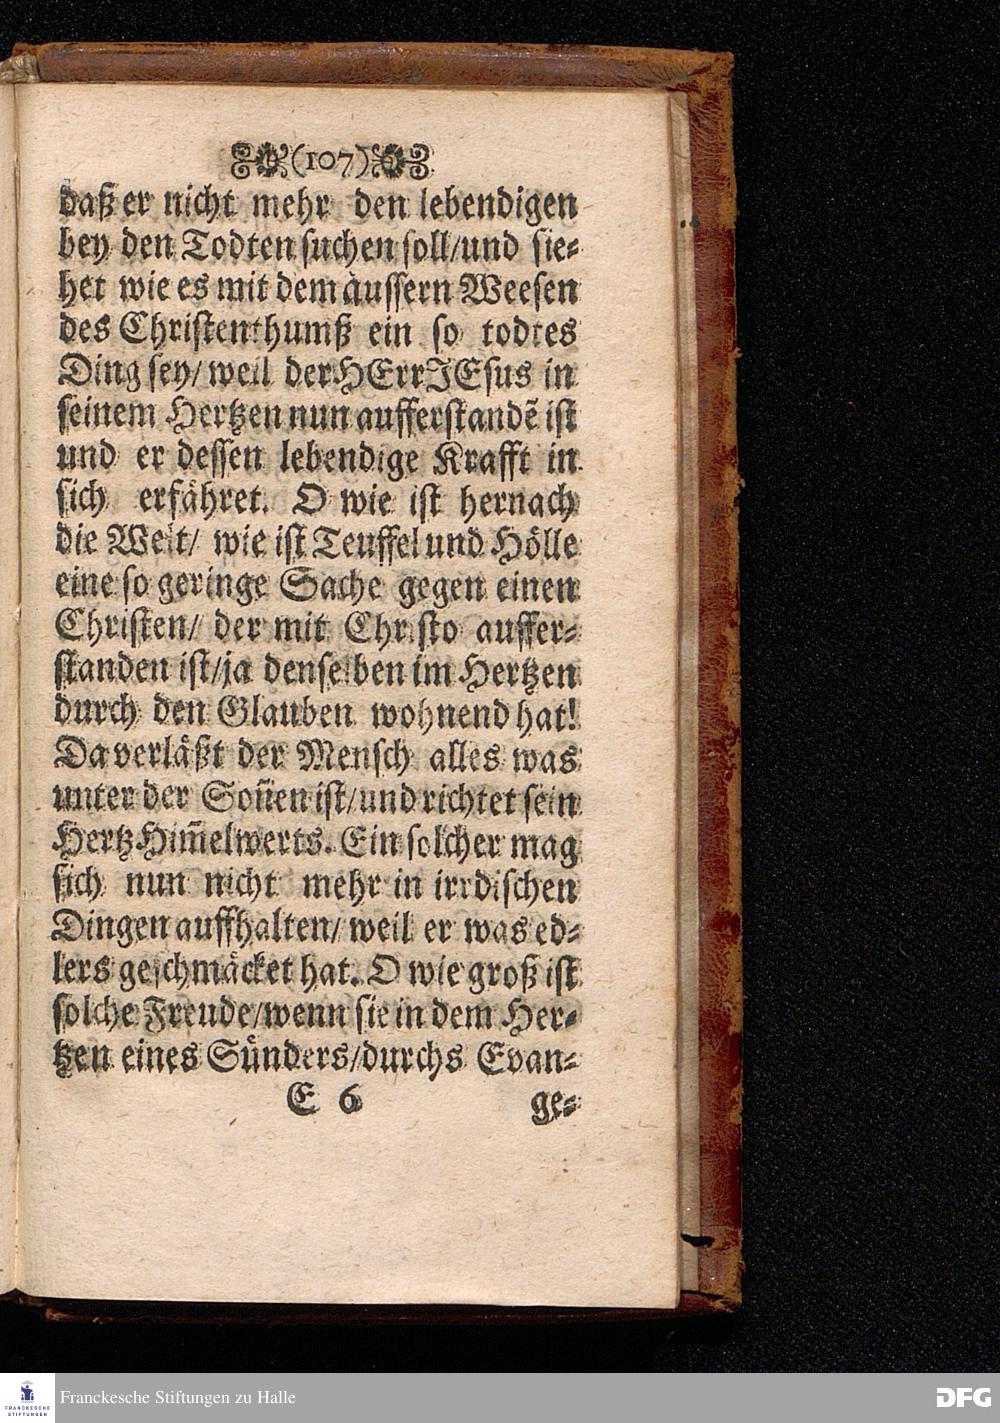 (107)
daß er nicht mehr den lebendigen
bey den Todten suchen soll/und sie-
het wie es mit dem äussern Weesen
des Christenthumß ein so todtes
Ding sey/ weil der HErr JEsus in
seinem Hertzen nun aufferstandē ist
und er dessen lebendige Krafft in
sich erfähret. O wie ist hernach
die Welt/ wie ist Teuffel und Hölle
eine so geringe Sache gegen einen
Christen/ der mit Christo auffer-
standen ist/ja denselben im Hertzen
durch den Glauben wohnend hat!
Da verläßt der Mensch alles was
unter der Soñen ist/und richtet sein
Hertz Him̃elwerts. Ein solcher mag
sich nun nicht mehr in irrdischen
Dingen auffhalten/ weil er was ed-
lers geschmäcket hat. O wie groß ist
solche Freude/wenn sie in dem Her-
tzen eines Sünders/durchs Evan-
E 6 ge-
FRANCKESCHE STIFTUNGEN
Franckesche Stiftungen zu Halle
DFG